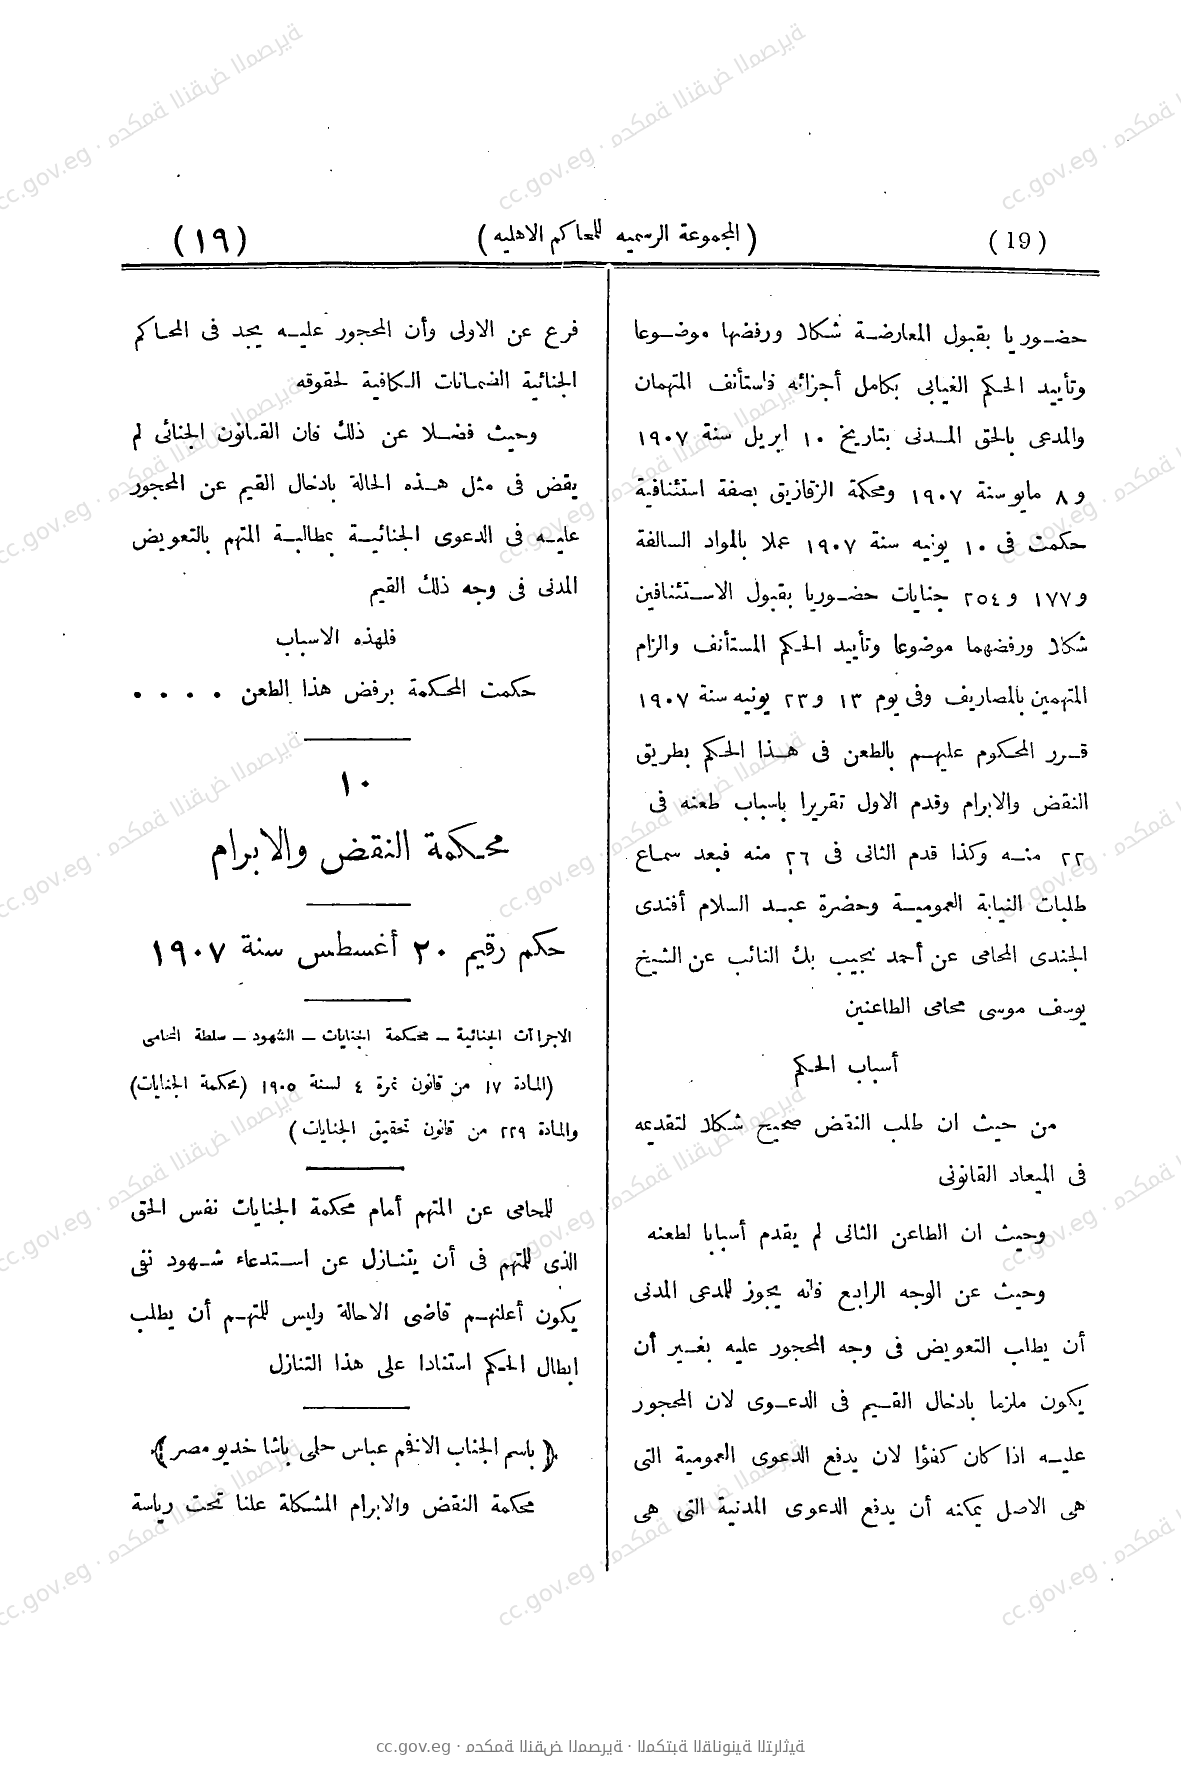 (19)
(المجموعة الرسميه للمحاكم الاهليه)
(١٩)
حضوريا بقبول المعارضة شكلا ورفضها موضوعا
وتأييد الحكم الغيابى بكامل أجزائه فاستأنف المتهمان
والمدعى بالحق المدنى بتاريخ ١٠ ابريل سنة ١٩٠٧
و ٨ مايو سنة ١٩٠٧ ومحكمة الزقازيق بصفة استئنافية
حكمت فى ١٠ يونيه سنة ١٩٠٧ عملا بالمواد السالفة
و١٧٧ و ٢٥٤ جنايات حضوريا بقبول الاستئنافين
شكلا ورفضهما موضوعا وتأييد الحكم المستأنف والزام
المتهمين بالمصاريف وفى يوم ١٣ و٢٣ يونيه سنة ١٩٠٧
قرر المحكوم عليهم بالطعن فى هذا الحكم بطريق
النقض والابرام وقدم الاول تقريرا باسباب طعنه فى
٢٢ منه وكذا قدم الثانى فى ٢٦ منه فبعد سماع
طلبات النيابة العمومية وحضرة عبد السلام أفندى
الجندى المحامى عن أحمد نجيب بك النائب عن الشيخ
يوسف موسى محامى الطاعنين
أسباب الحكم
من حيث ان طلب النقض صحيح شكلا لتقديمه
فى الميعاد القانونى
وحيث ان الطاعن الثانى لم يقدم أسبابا لطعنه
وحيث عن الوجه الرابع فانه يجوز للمدعى المدنى
أن يطلب التعويض فى وجه المحجور عليه بغير أن
يكون ملزما بادخال القيم فى الدعوى لان المحجور
عليه اذا كان كفؤا لان يدفع الدعوى العمومية التى
هى الاصل يمكنه أن يدفع الدعوى المدنية التى هى
فرع عن الاولى وأن المحجور عليه يجد فى المحاكم
الجنائية الضمانات الكافية لحقوقه
وحيث فضلا عن ذلك فان القانون الجنائى لم
يقض فى مثل هذه الحالة بادخال القيم عن المحجور
عليه فى الدعوى الجنائية بمطالبة المتهم بالتعويض
المدنى فى وجه ذلك القيم
فلهذه الاسباب
حكمت المحكمة برفض هذا الطعن . . . .
١٠
محكمة النقض والابرام
حكم رقيم ٢٠ أغسطس سنة ١٩٠٧
الاجراآت الجنائية – محكمة الجنايات – الشهود – سلطة المحامى
(المادة ١٧ من قانون نمرة ٤ لسنة ١٩٠٥ (محكمة الجنايات)
والمادة ٢٢٩ من قانون تحقيق الجنايات)
للمحامى عن المتهم أمام محكمة الجنايات نفس الحق
الذى للمتهم فى أن يتنازل عن استدعاء شهود نفى
يكون أعلنهم قاضى الاحالة وليس للمتهم أن يطلب
ابطال الحكم استنادا على هذا التنازل
﴿باسم الجناب الافخم عباس حلمى باشا خديو مصر﴾
محكمة النقض والابرام المشكلة علنا تحت رياسة
cc.gov.eg · محكمة النقض المصرية · المكتبة القانونية التراثية